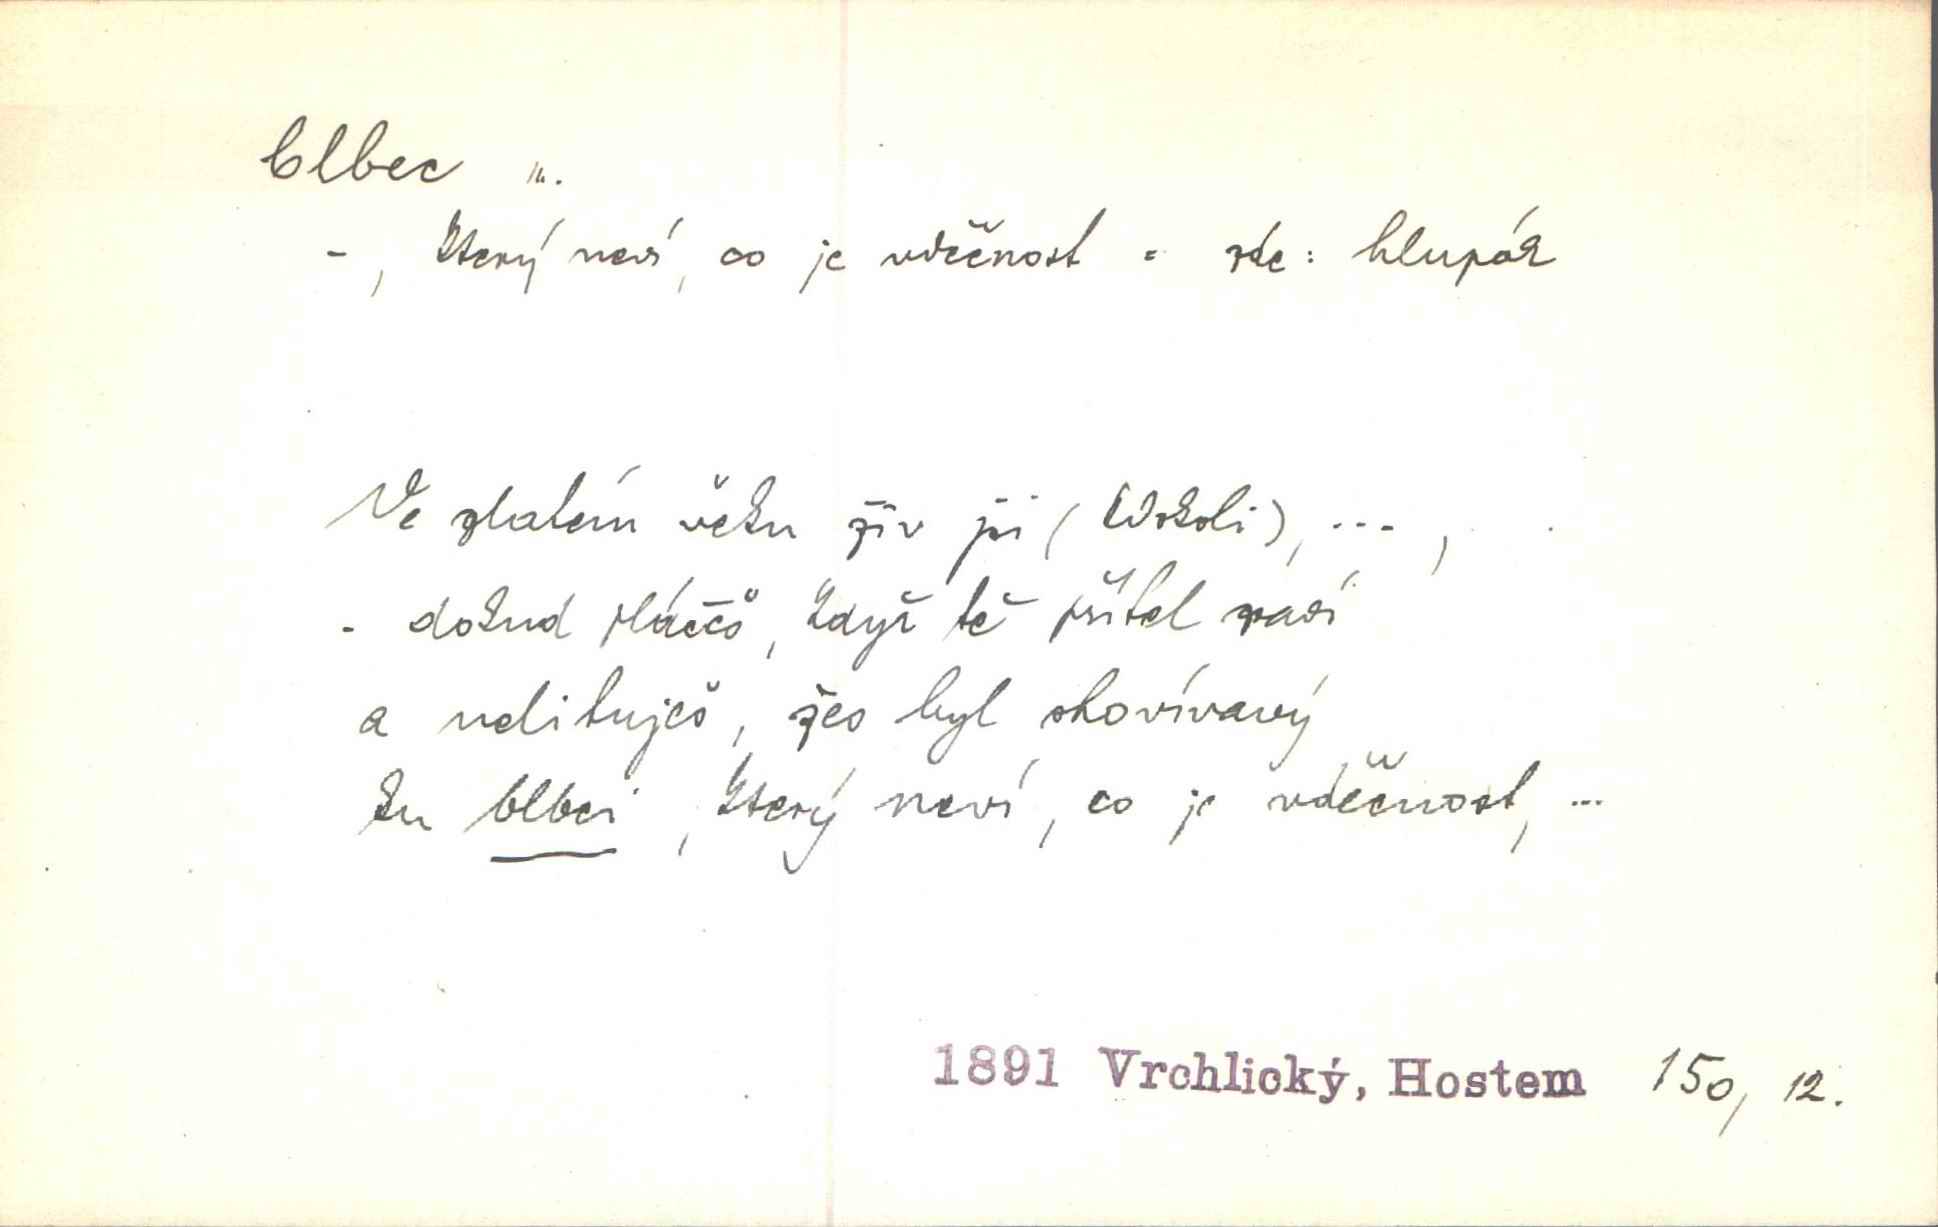 blbec m.
-, který neví, co je vděčnost = zde: hlupák
Ve zlatém věku živ jsi (kdokoli), ... ,
- dokud pláčeš, když tě přítel zradí
a nelituješ, žes byl shovívavý
ku blbci, který neví, co je vděčnost, ...
1891 Vrchlický, Hostem 150, 12.